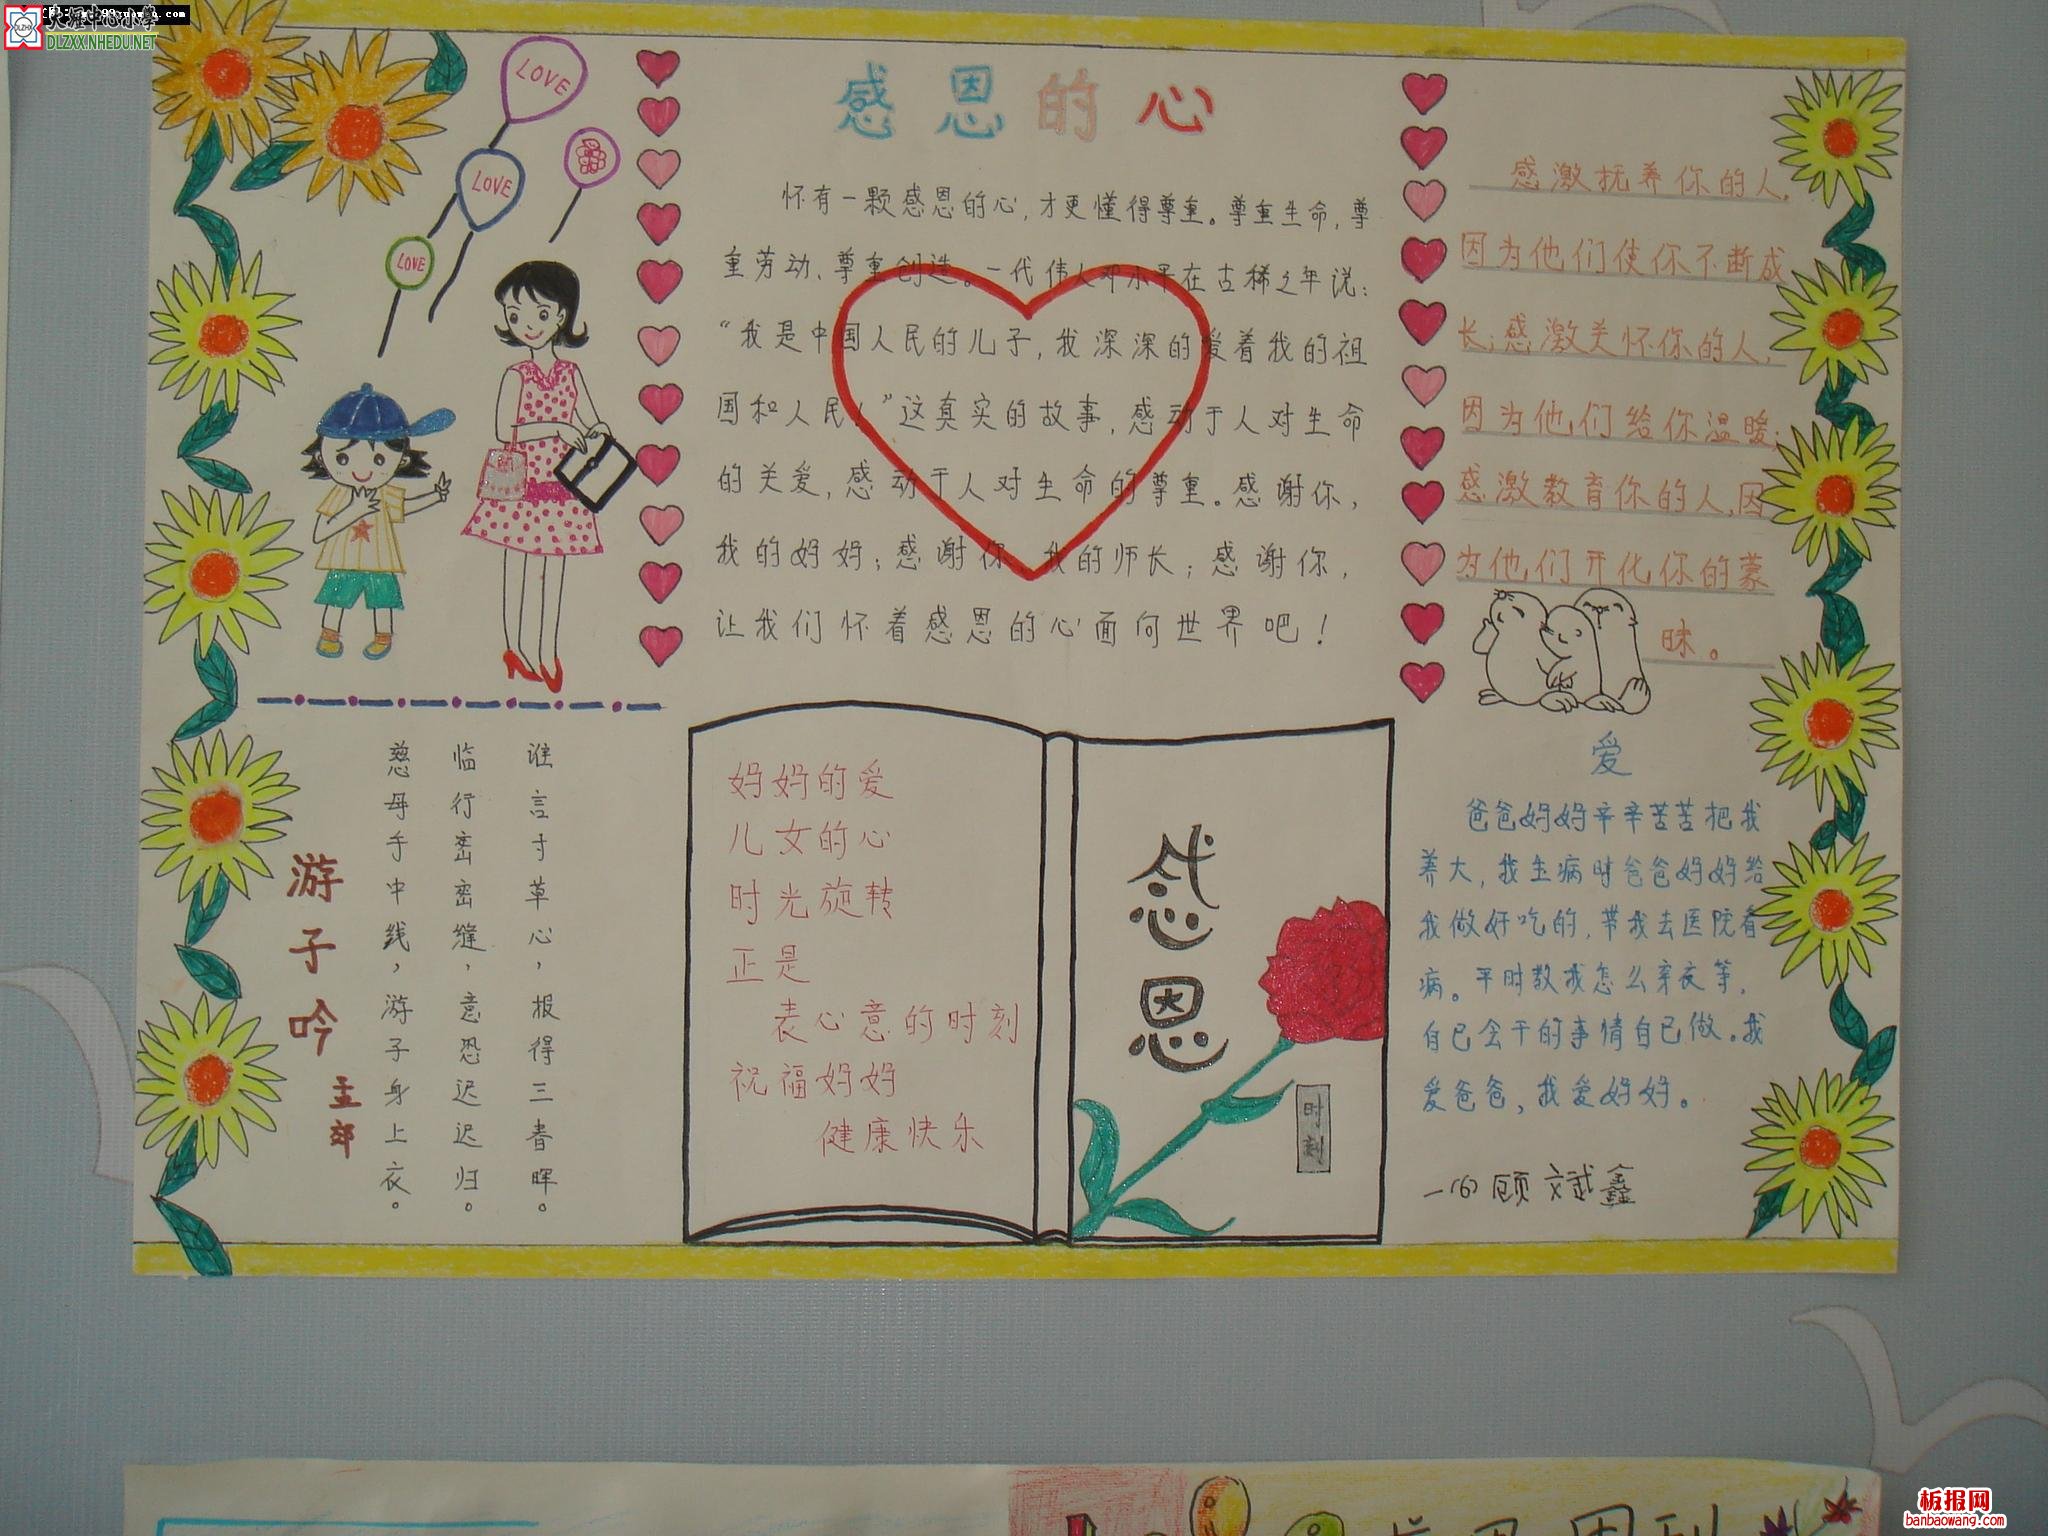 大堰中心小学
DLZXX.NHEDU.NET
LOVE
LOVE
LOVE
感恩的心
怀有一颗感恩的心,才更懂得尊重。尊重生命,尊
重劳动、尊重创造。一代伟人邓小平在古稀之年说:
“我是中国人民的儿子,我深深的爱着我的祖
国和人民!”这真实的故事,感动于人对生命
的关爱,感动于人对生命的尊重。感谢你,
我的妈妈;感谢你 我的师长;感谢你,
让我们怀着感恩的心面向世界吧!
感激抚养你的人,
因为他们使你不断成
长;感激关怀你的人,
因为他们给你温暖;
感激教育你的人,因
为他们开化你的蒙
昧。
游子吟
孟郊
慈母手中线,游子身上衣。
临行密密缝,意恐迟迟归。
谁言寸草心,报得三春晖。
妈妈的爱
儿女的心
时光旋转
正是
表心意的时刻
祝福妈妈
健康快乐
感恩
时刻
爱
爸爸妈妈辛辛苦苦把我
养大,我生病时爸爸妈妈给
我做好吃的,带我去医院看
病。平时教我怎么穿衣等,
自已会干的事情自已做。我
爱爸爸,我爱妈妈。
一(6)顾斌鑫
板报网
banbaowang.com